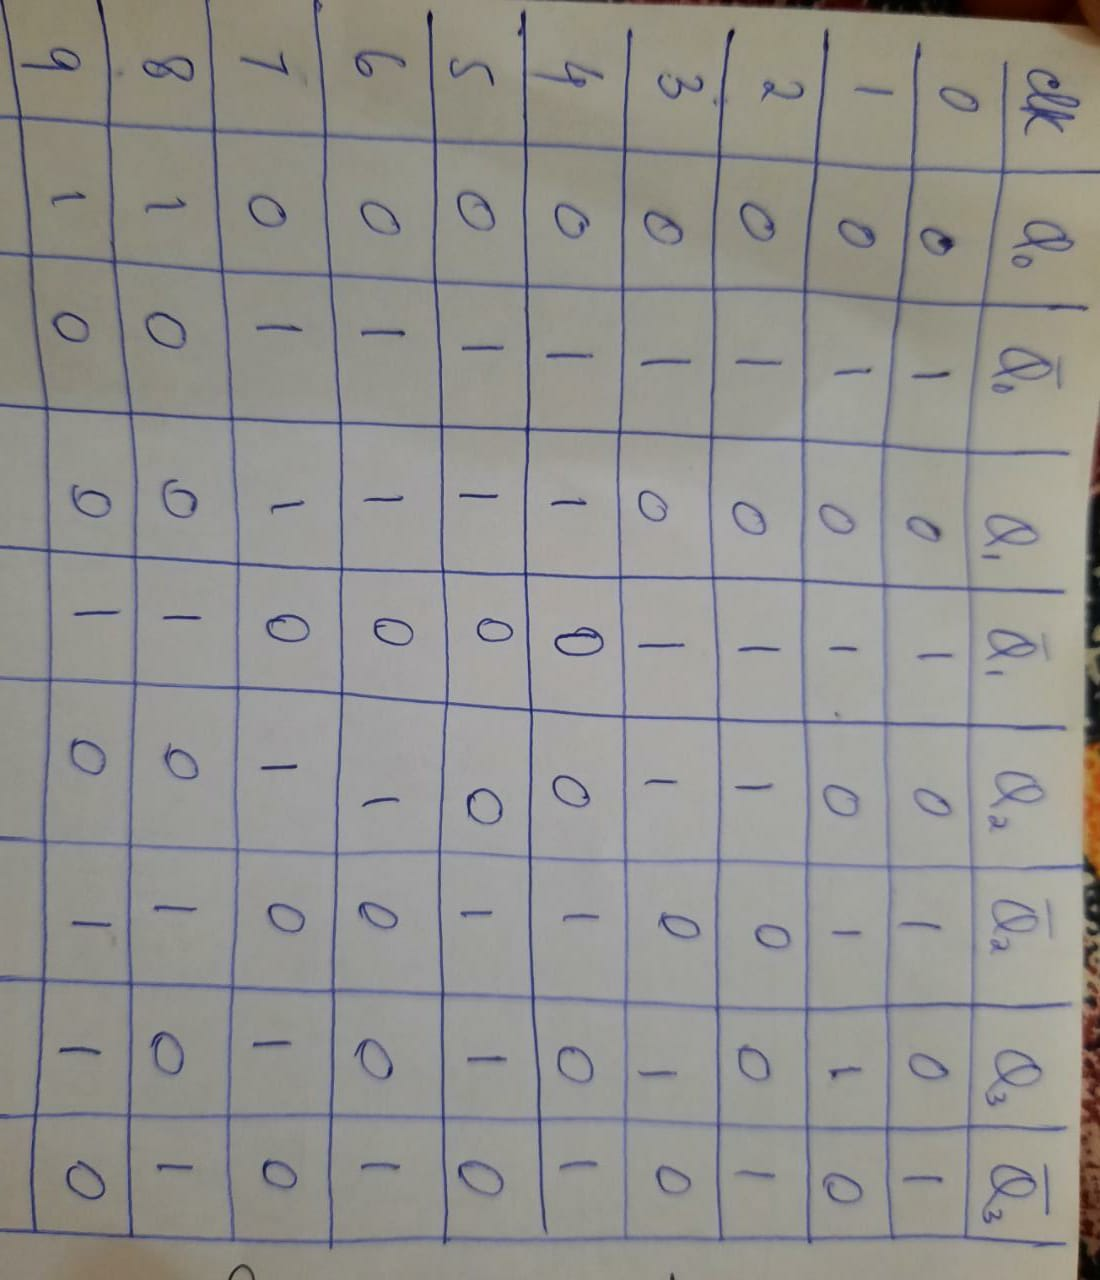 clk Q₀ Q̄₀ Q₁ Q̄₁ Q₂ Q̄₂ Q₃ Q̄₃
0 0 1 0 1 0 1 0 1
1 0 1 0 1 0 1 1 0
2 0 1 0 1 1 0 0 1
3 0 1 0 1 1 0 1 0
4 0 1 1 0 0 1 0 1
5 0 1 1 0 0 1 1 0
6 0 1 1 0 1 0 0 1
7 0 1 1 0 1 0 1 0
8 1 0 0 1 0 1 0 1
9 1 0 0 1 0 1 1 0